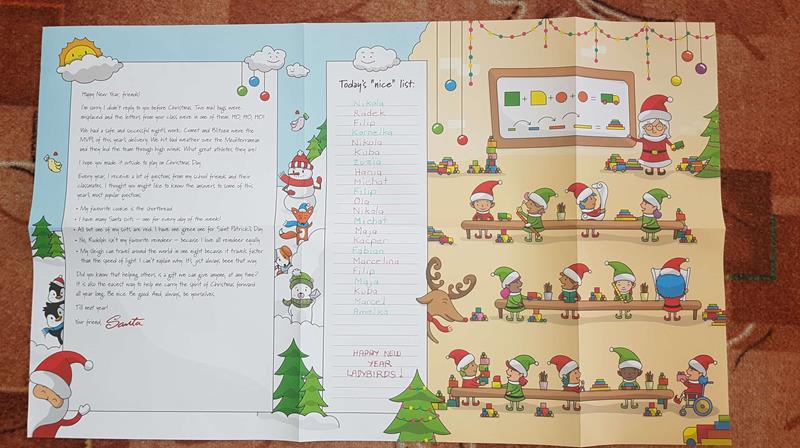 Happy New Year, friends!
I'm sorry I didn't reply to you before Christmas. Two mail bags were
misplaced and the letters from your class were in one of them. HO, HO, HO!
We had a safe and successful night's work. Comet and Blitzen were the
MVPs of this year's delivery. We hit bad weather over the Mediterranean
and they led the team through high winds. What great athletes they are!
I hope you made it outside to play on Christmas Day.
Every year, I receive a lot of questions from my school friends and their
classmates. I thought you might like to know the answers to some of this
year's most popular questions:
• My favourite cookie is the shortbread.
• I have many Santa suits – one for every day of the week!
• All but one of my suits are red. I have one green one for Saint Patrick's Day.
• No, Rudolph isn't my favourite reindeer – because I love all reindeer equally.
• My sleigh can travel around the world in one night because it travels faster
than the speed of light. I can't explain why. It's just always been that way.
Did you know that helping others is a gift we can give anyone, at any time?
It is also the easiest way to help me carry the spirit of Christmas forward
all year long. Be nice. Be good. And, always, be yourselves.
Till next year!
Your friend, Santa
Today's "nice" list:
Nikola
Radek
Filip
Kornelka
Nikola
Kuba
Zuzia
Hania
Michał
Filip
Ola
Nikola
Michał
Maja
Kacper
Fabian
Marcelina
Filip
Maja
Kuba
Marcel
Amelka
HAPPY NEW
YEAR
LADYBIRDS!